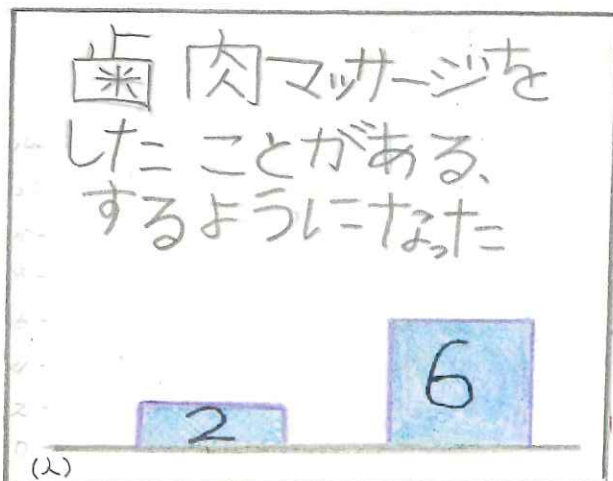 歯肉マッサージを
したことがある、
するようになった
2
6
(人)